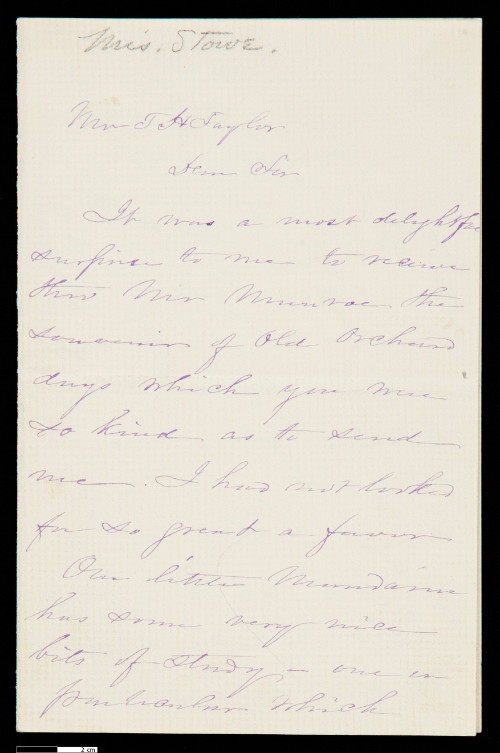 Mrs. Stowe.
Mr T H Taylor
Dear Sir
It was a most delightful
surprise to me to receive
thro Mr Munroe the
souvenir of Old Orchard
days which you were
so kind as to send
me. I had not looked
for so great a favor
Our little
has some very nice
bits of study – one in
particular which
2 cm